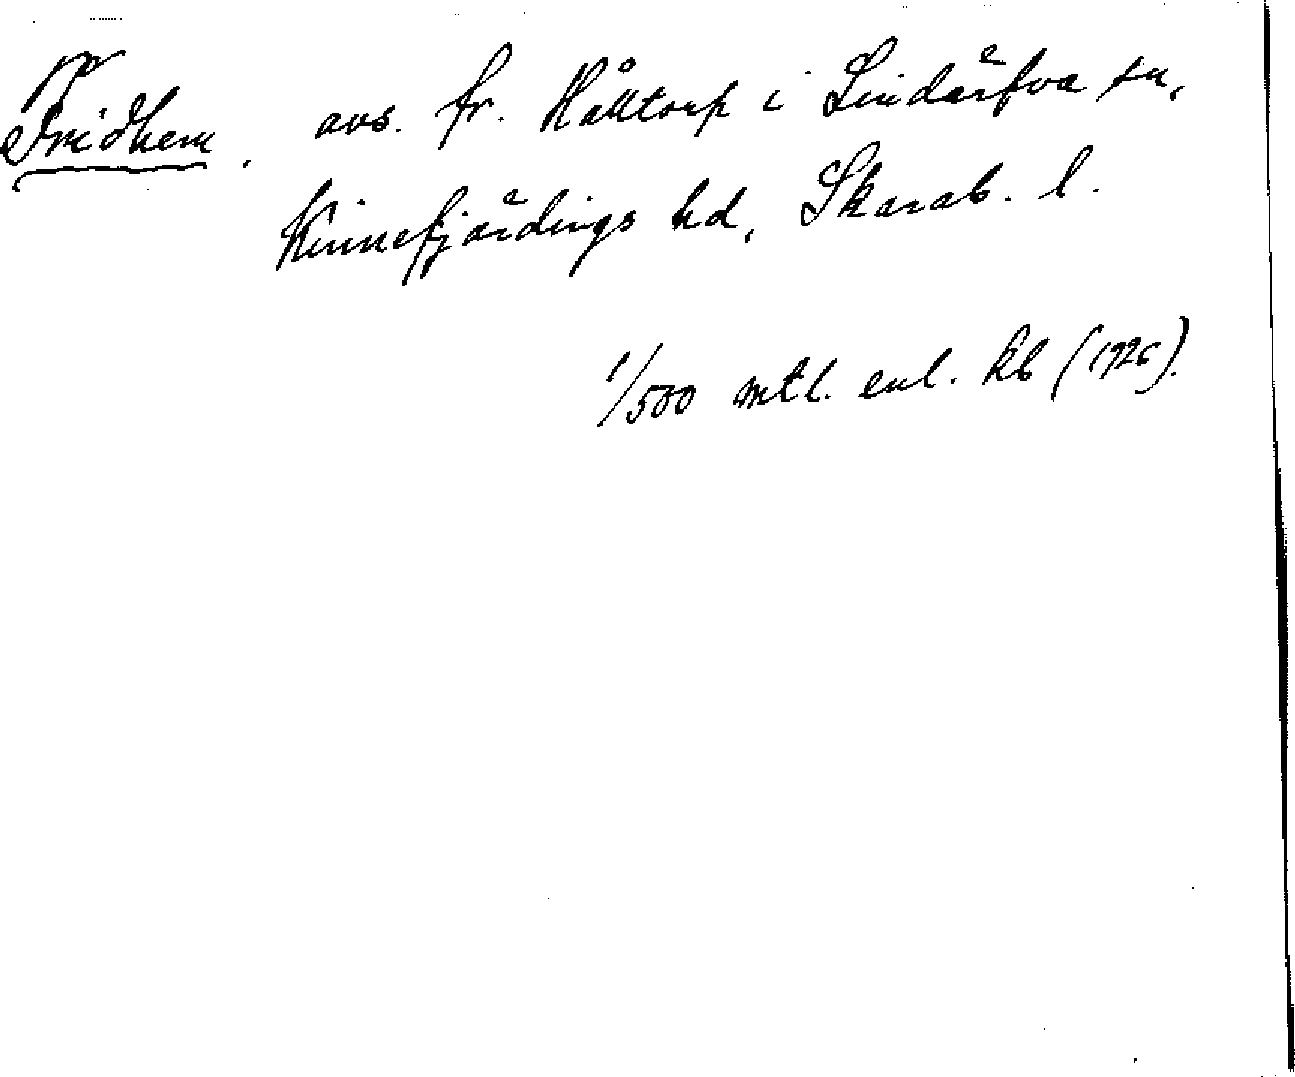 Fridhem, avs. fr. Hålltorp i Lindärfva sn,
Kinnefjärdings hd, Skarab. l.
1/500 mtl. enl. kb (1926).